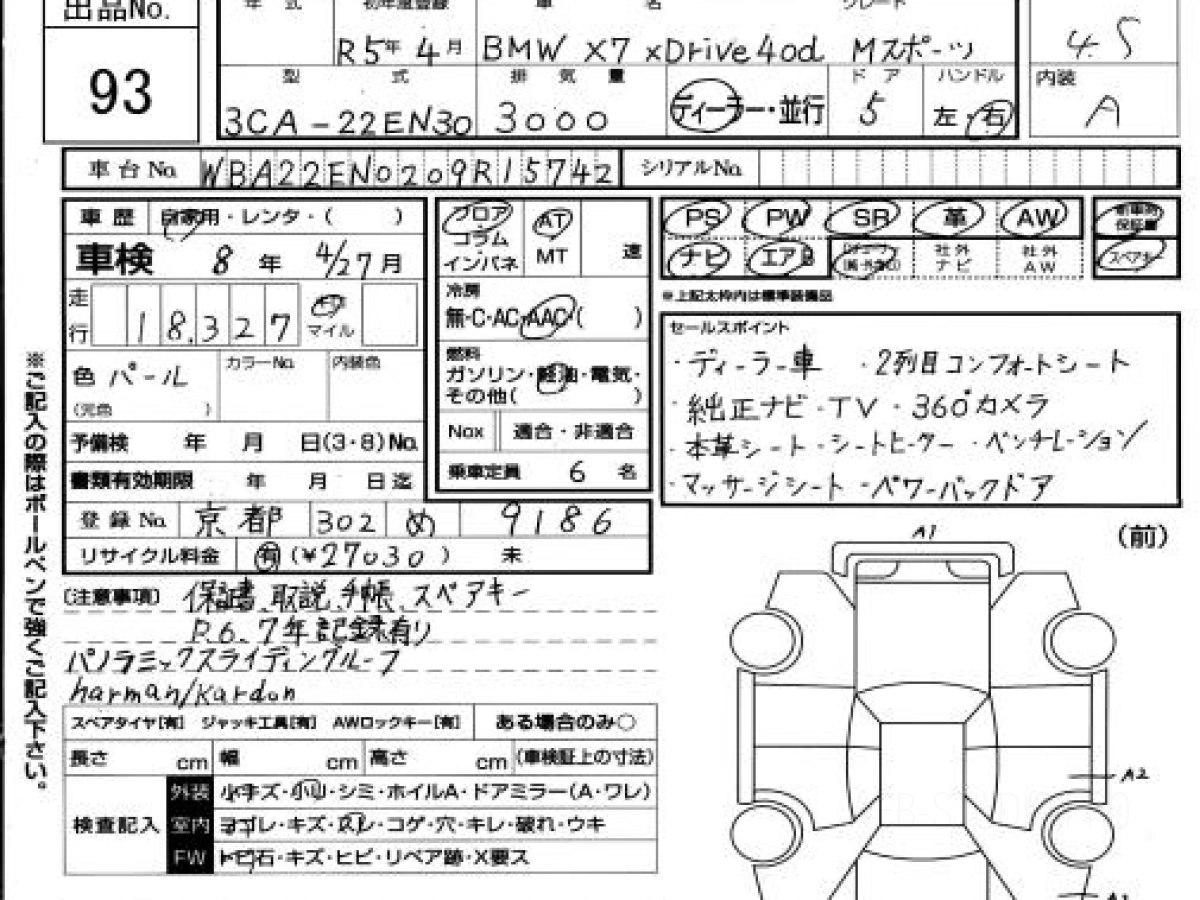 出品No.
93
年 式 初年度登録 車 名 グレード
R5年 4月 BMW X7 xDrive40d Mスポーツ
4.5
型 式 排 気 量 ドア ハンドル 内装
3CA-22EN30 3000 ディーラー・並行 5 左・右 A
車台No. WBA22EN0209R15742 シリアルNo.
車歴 自家用・レンタ・( )
車検 8年 4/27月
走行 18,327 マイル
色 パール カラーNo. 内装色
(元色 )
予備検 年 月 日(3・8)No.
書類有効期限 年 月 日迄
登録No. 京都 302 め 9186
リサイクル料金 有(¥27030) 未
フロア AT
コラム MT 速
インパネ
冷房
無・C・AC・AAC( )
燃料
ガソリン・軽油・電気・
その他( )
Nox 適合・非適合
乗車定員 6 名
PS PW SR 革 AW 新車時保証書
ナビ エアB 社外ナビ 社外AW スペアキー
※上記太枠内は標準装備品
セールスポイント
・ディーラー車 ・2列目コンフォートシート
・純正ナビ・TV・360°カメラ
・本革シート・シートヒーター・ベンチレーション
・マッサージシート・パワーバックドア
(注意事項) 保証書、取説、手帳、スペアキー
R6、7年記録有り
パノラミックスライディングルーフ
harman/kardon
スペアタイヤ[有] ジャッキ工具[有] AWロックキー[有] ある場合のみ○
長さ cm 幅 cm 高さ cm (車検証上の寸法)
検査記入
外装 小キズ・小凹・シミ・ホイルA・ドアミラー(A・ワレ)
室内 ヨゴレ・キズ・スレ・コゲ・穴・キレ・破れ・ウキ
FW トビ石・キズ・ヒビ・リペア跡・X要ス
※ご記入の際はボールペンで強くご記入下さい。
A1
(前)
A2